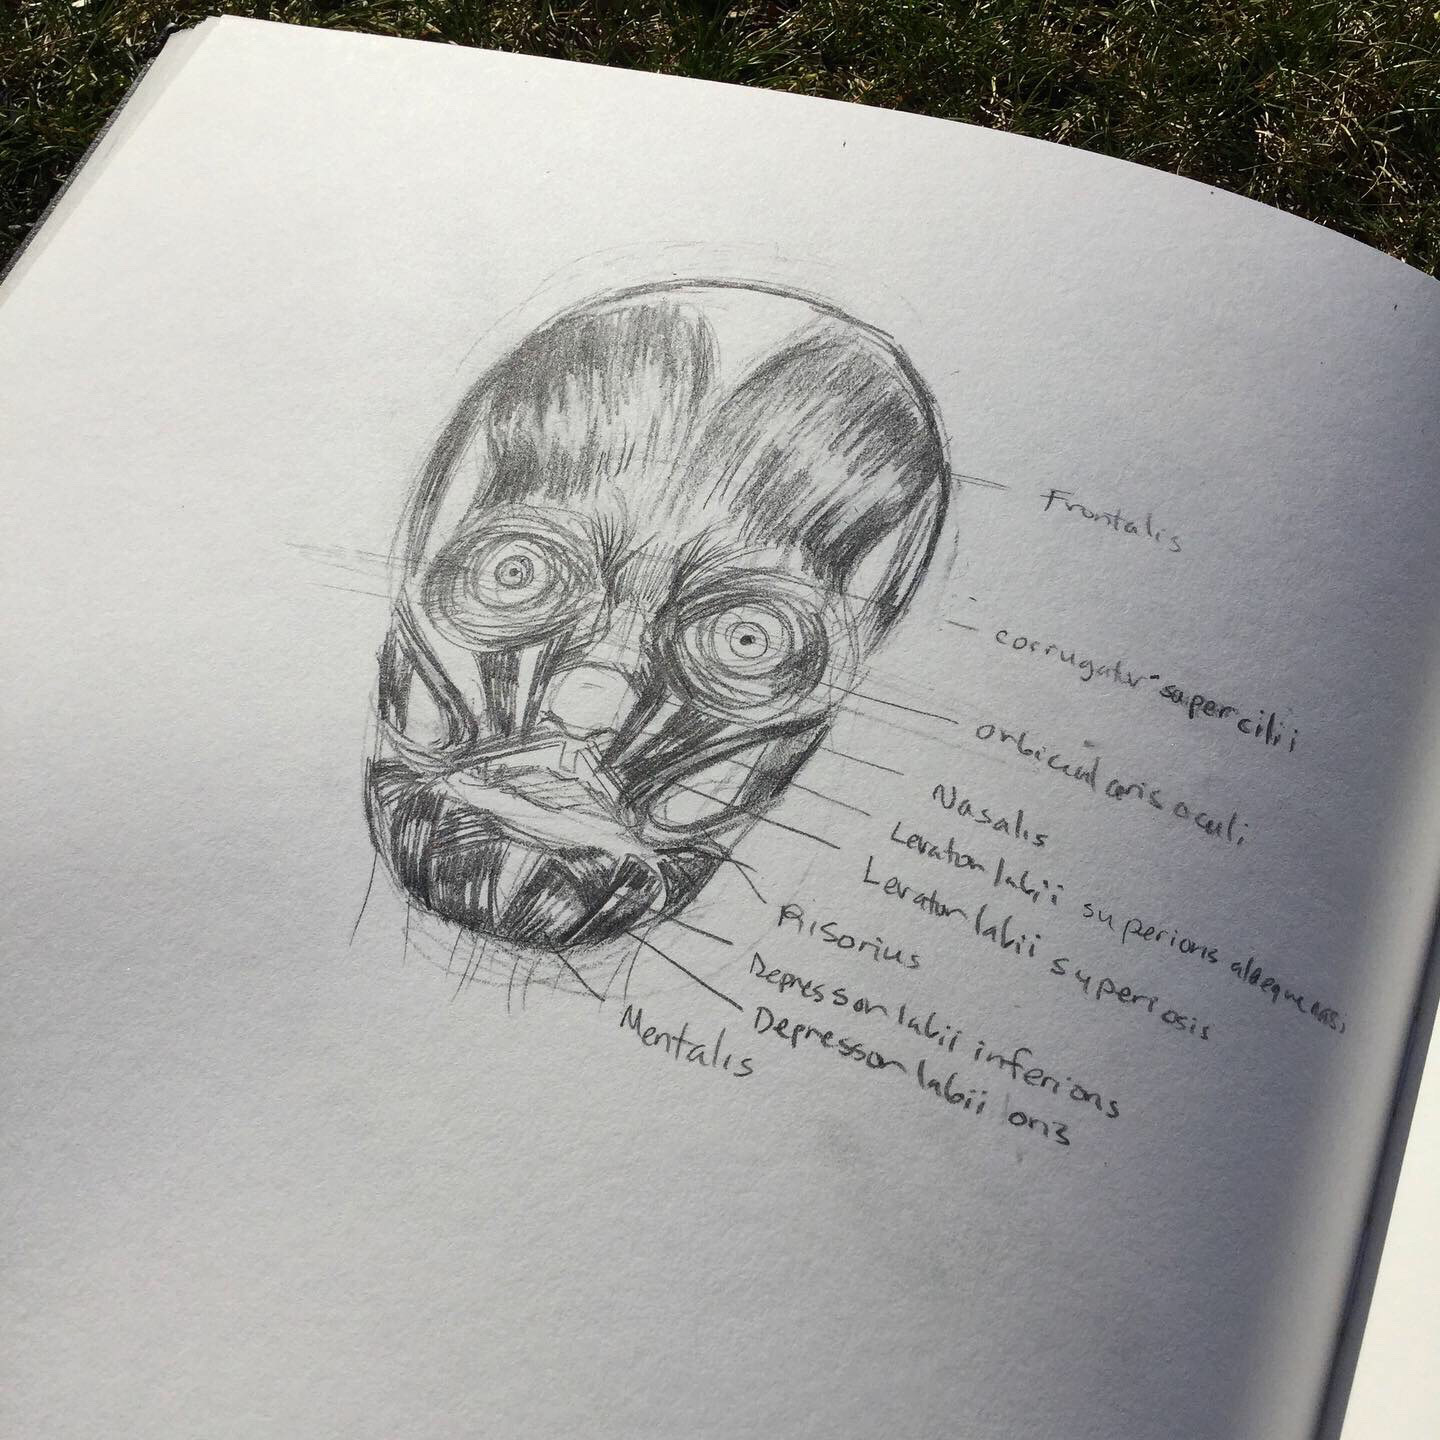 Frontalis
corrugator supercilii
orbicularis oculi
Nasalis
Levator labii superioris alaeque nasi
Levator labii superiosis
Risorius
Depressor labii inferioris
Depressor labii
Mentalis